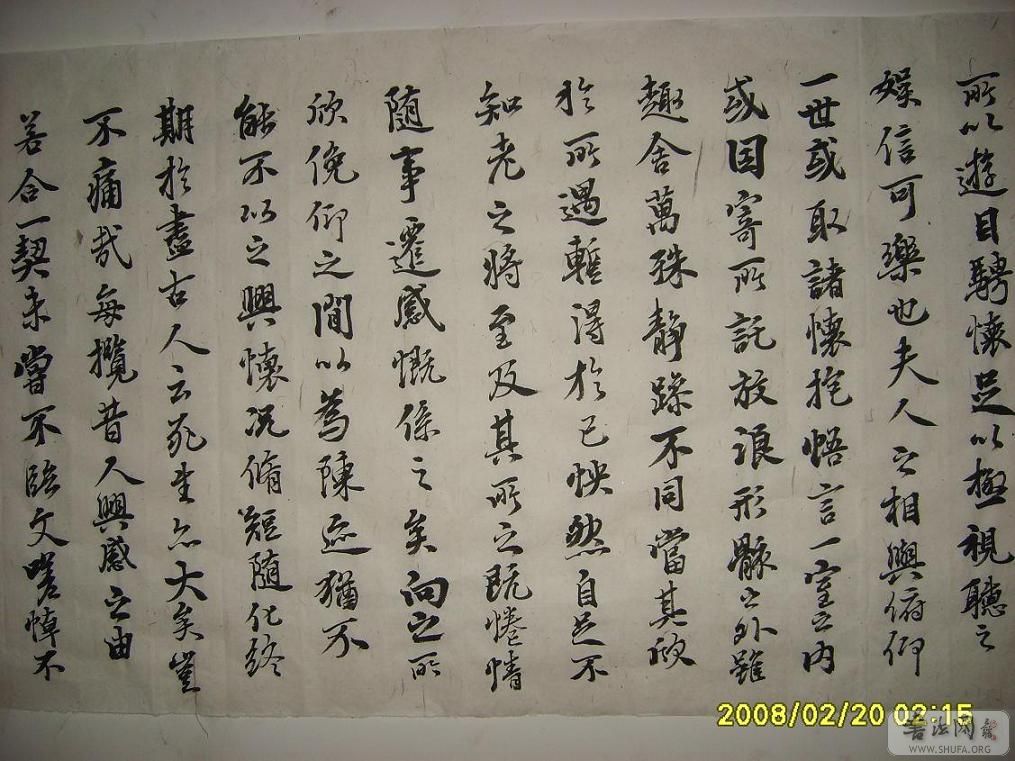 所以遊目騁懷足以極視聽之
娛信可樂也夫人之相與俯仰
一世或取諸懷抱悟言一室之內
或因寄所託放浪形骸之外雖
趣舍萬殊靜躁不同當其欣
於所遇暫得於己怏然自足不
知老之將至及其所之既惓情
隨事遷感慨係之矣向之所
欣俛仰之間以為陳迹猶不
能不以之興懷況脩短隨化終
期於盡古人云死生亦大矣豈
不痛哉每攬昔人興感之由
若合一契未嘗不臨文嗟悼不
2008/02/20 02:15
書法网
WWW.SHUFA.ORG